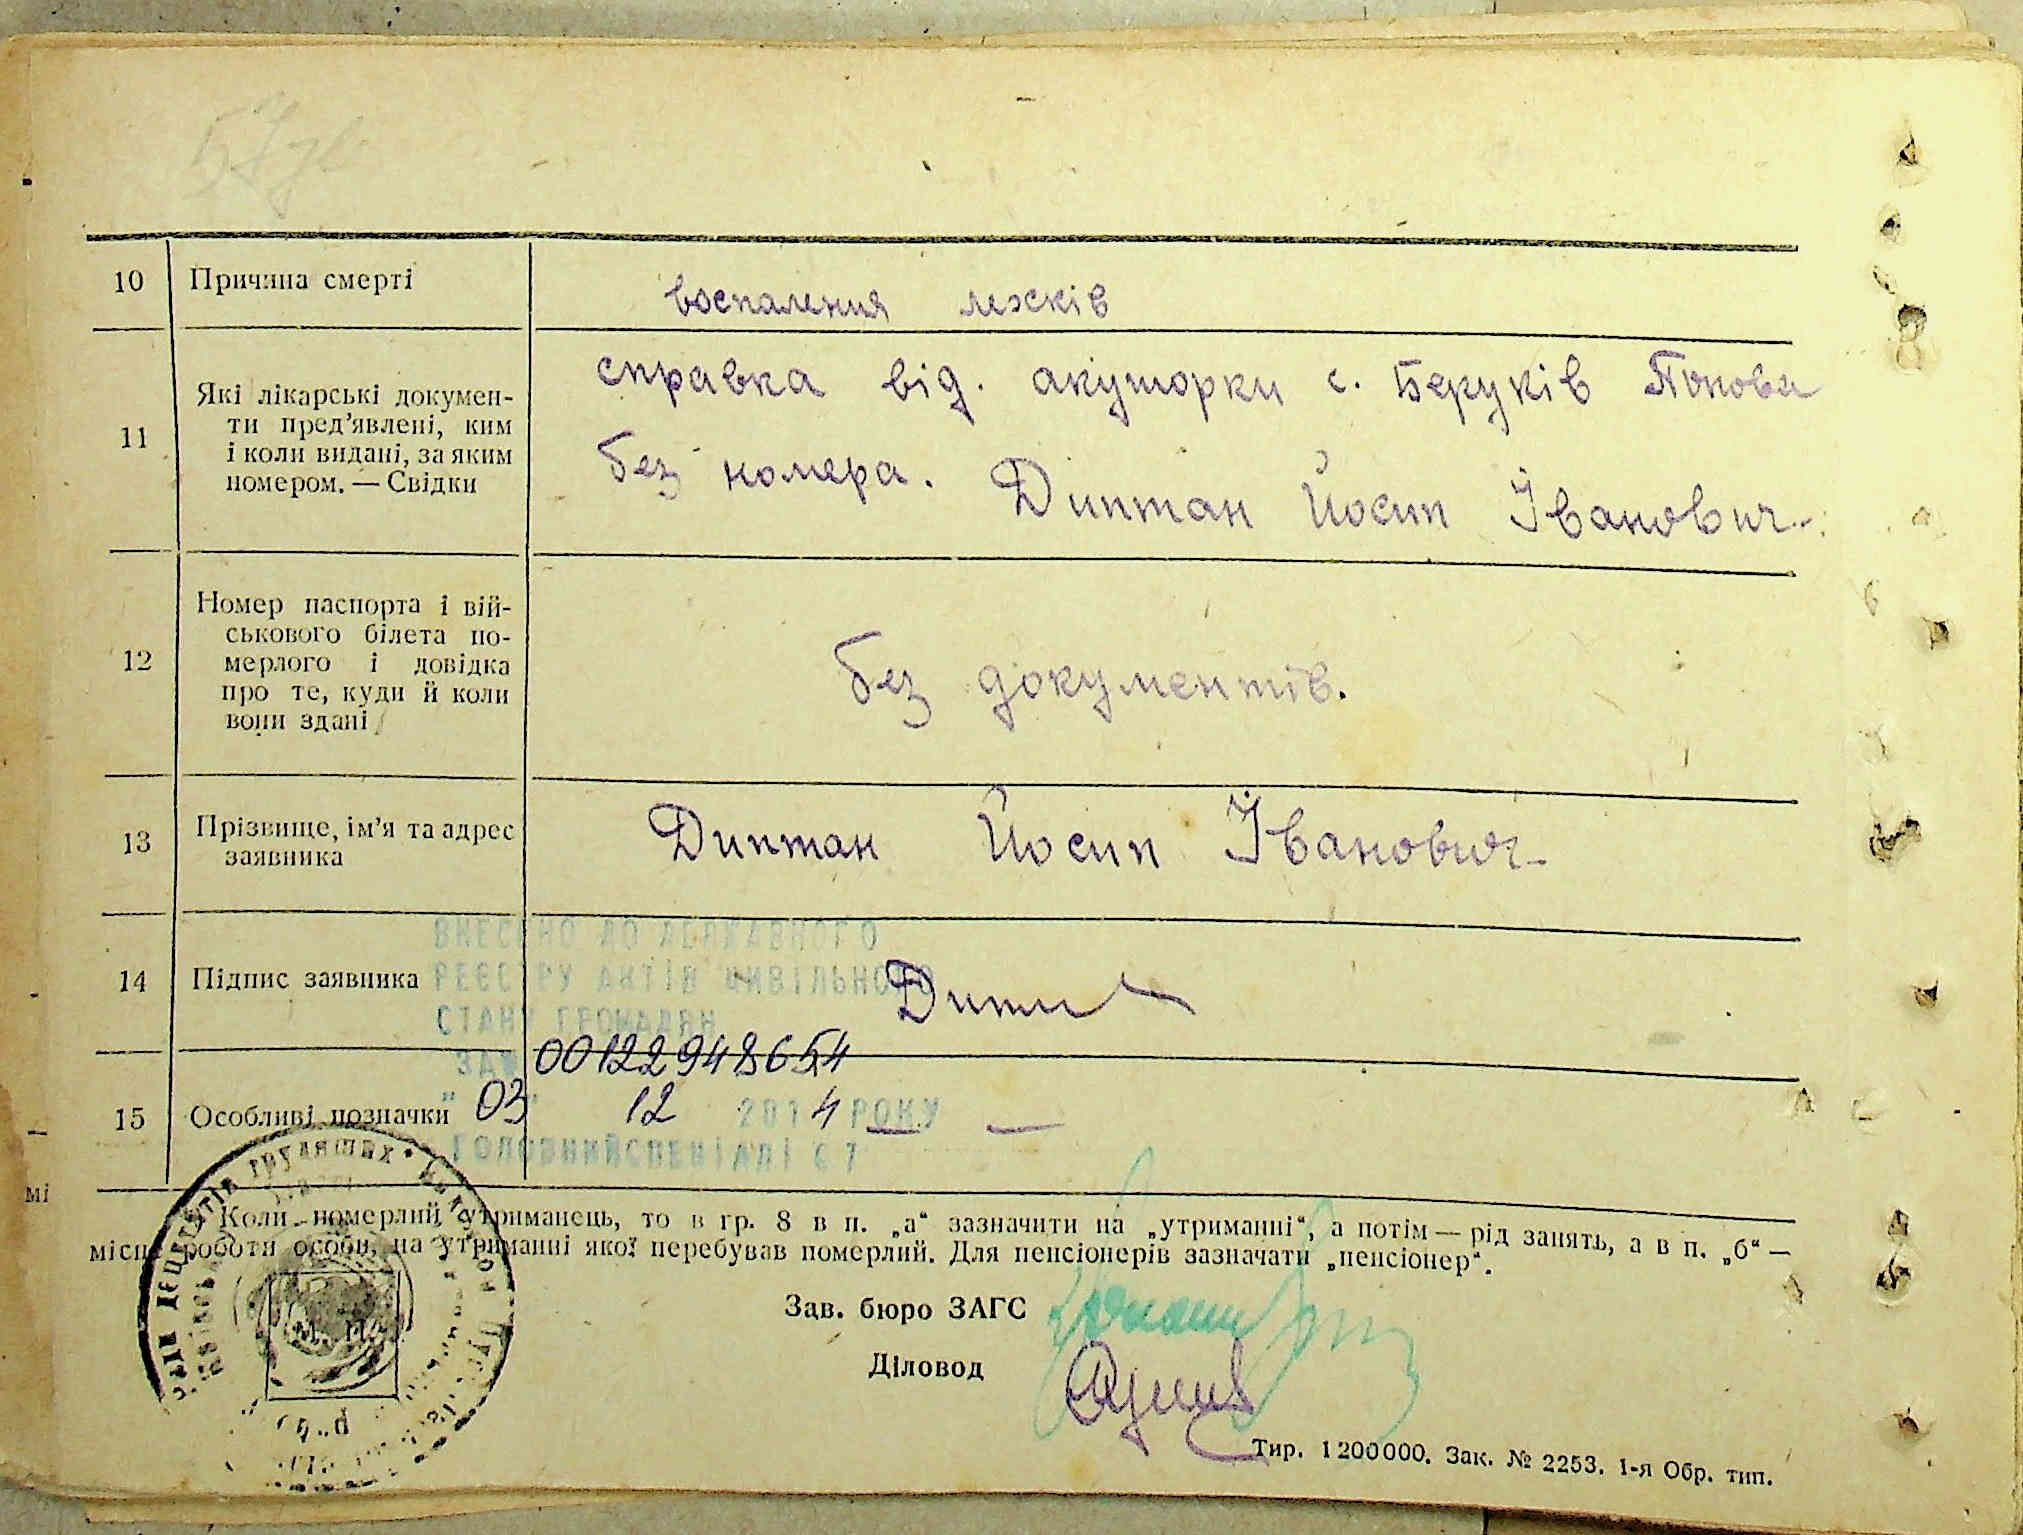 10 Причина смерті
воспаления лежків
11 Які лікарські докумен-
ти пред’явлені, ким
і коли видані, за яким
номером. — Свідки
справка від. акушорки с. Беруків Попова
без номера. Диптан Йосип Іванович
12 Номер паспорта і вій-
ськового білета по-
мерлого і довідка
про те, куди й коли
вони здані
без документів.
13 Прізвище, ім’я та адрес
заявника
Диптан Йосип Іванович
14 Підпис заявника
ВНЕСЕНО ДО ДЕРЖАВНОГО
РЕЄСТРУ АКТІВ ЦИВІЛЬНОГО
СТАНУ ГРОМАДЯН
00122948654
15 Особливі позначки
"03" 12 2014 РОКУ —
ГОЛОВНИЙ СПЕЦІАЛІСТ
Коли померлий утриманець, то в гр. 8 в п. „а“ зазначити на „утриманні“, а потім — рід занять, а в п. „б“ —
місце роботи особи, на утриманні якої перебував померлий. Для пенсіонерів зазначати „пенсіонер“.
Зав. бюро ЗАГС
Діловод
Тир. 1200000. Зак. № 2253. 1-я Обр. тип.
мі